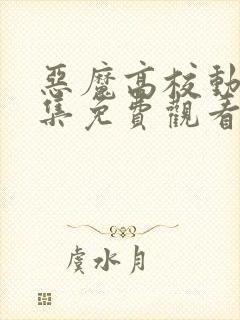 惡魔高校動
集免費觀看
虞水月